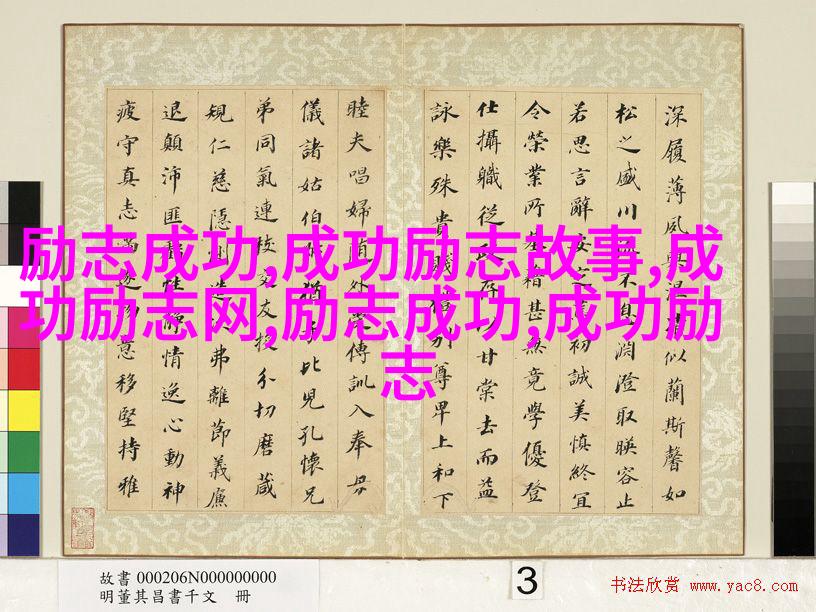 深履薄夙興温凊似蘭斯馨如
松之盛川流不息淵澄取暎容止
若思言辭安定篤初誠美慎終宜
令榮業所基籍甚無竟學優登
仕攝職從政存以甘棠去而益
詠樂殊貴賤禮別尊卑上和下
睦夫唱婦随外受傅訓入奉母
儀諸姑伯叔猶子比兒孔懷兄
弟同氣連枝交友投分切磨葴
規仁慈隱惻造次弗離節義廉
退顛沛匪虧性靜情逸心動神
疲守真志滿逐物意移堅持雅
励志成功,成功励志故事,成
功励志网,励志成功,成功励
志
故書 000206N000000000
明董其昌書千文 冊
3
书法欣赏 www.yac8.com